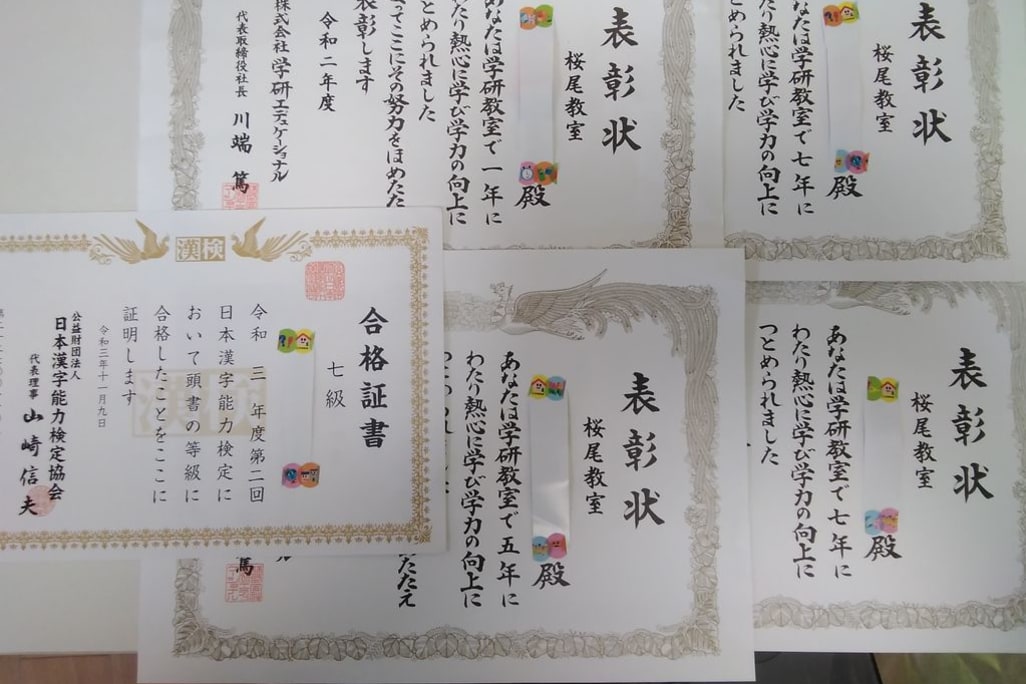 表彰状
桜尾教室
殿
あなたは学研教室で一年に
わたり熱心に学び学力の向上に
つとめられました
よってここにその努力をほめたた
表彰します
令和二年度
株式会社 学研エデュケーショナル
代表取締役社長 川端 篤
表彰状
桜尾教室
殿
あなたは学研教室で七年に
わたり熱心に学び学力の向上に
つとめられました
漢検
合格証書
七級
令和三年度第二回
日本漢字能力検定に
おいて頭書の等級に
合格したことをここに
証明します
令和三年十一月九日
公益財団法人
日本漢字能力検定協会
代表理事 山崎信夫
漢検
表彰状
桜尾教室
殿
あなたは学研教室で五年に
わたり熱心に学び学力の向上に
たたえ
篤
表彰状
桜尾教室
殿
あなたは学研教室で七年に
わたり熱心に学び学力の向上に
つとめられました